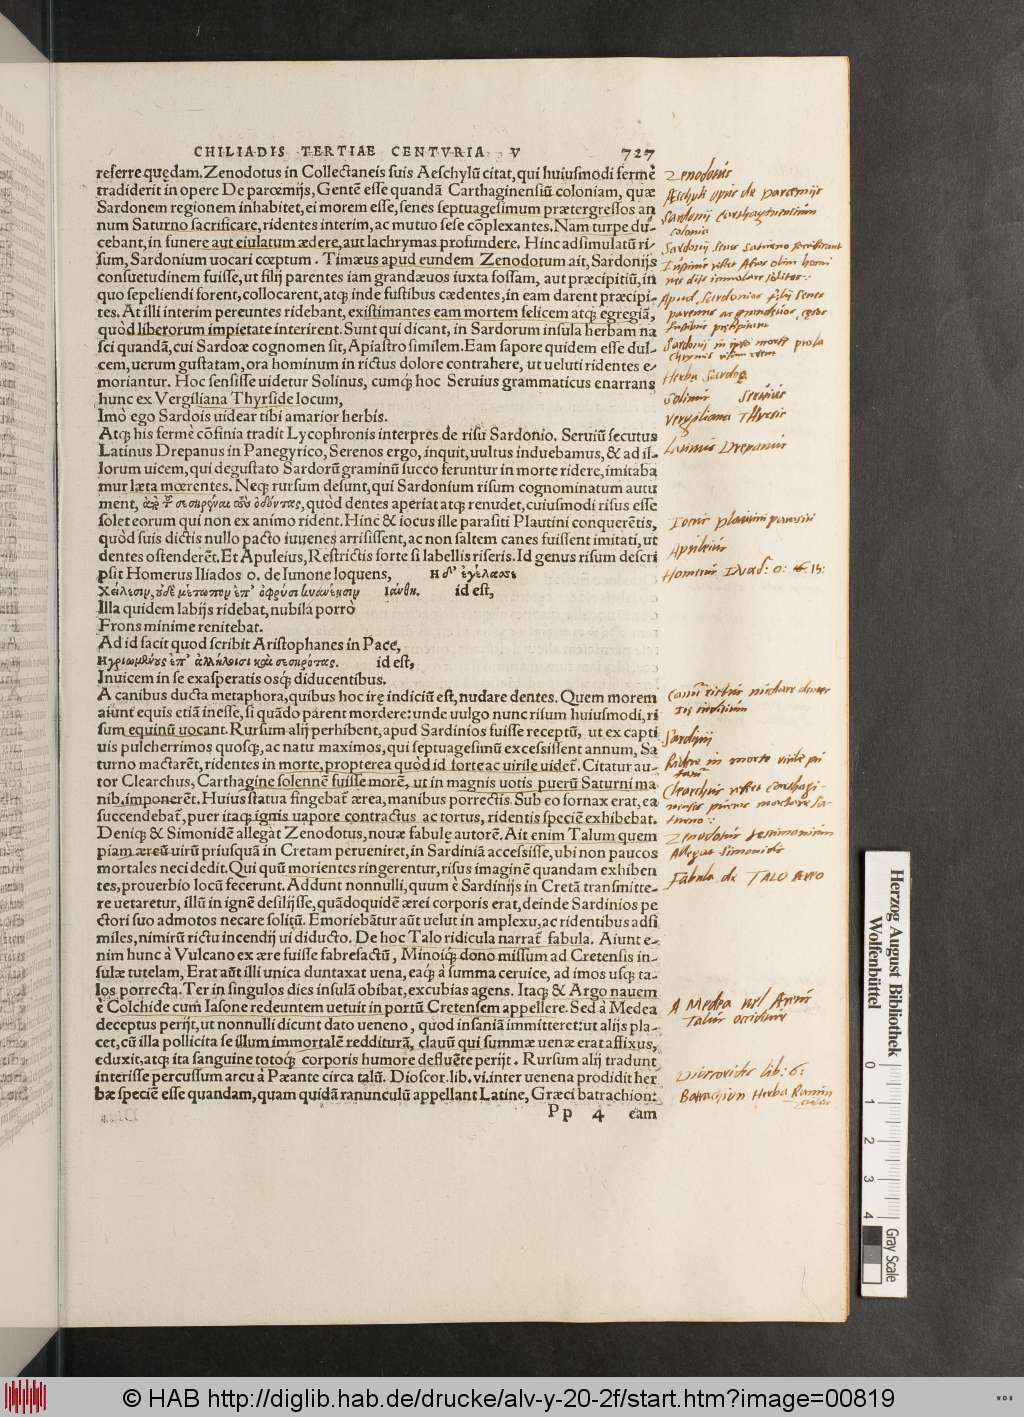 CHILIADIS TERTIAE CENTVRIA V 727
referre quędam. Zenodotus in Collectaneis suis Aeschylū citat, qui huiusmodi fermè
tradiderit in opere De parœmijs, Gentē esse quandā Carthaginensiū coloniam, quæ
Sardonem regionem inhabitet, ei morem esse, senes septuagesimum prætergressos an
num Saturno sacrificare, ridentes interim, ac mutuo sese cōplexantes. Nam turpe du-
cebant, in funere aut eiulatum ædere, aut lachrymas profundere. Hinc adsimulatū ri-
sum, Sardonium uocari cœptum. Timæus apud eundem Zenodotum ait, Sardonijs
consuetudinem fuisse, ut filij parentes iam grandæuos iuxta fossam, aut præcipitiū, in
quo sepeliendi forent, collocarent, atq; inde fustibus cædentes, in eam darent præcipi-
tes. At illi interim pereuntes ridebant, existimantes eam mortem felicem atq; egregiā,
quòd liberorum impietate interirent. Sunt qui dicant, in Sardorum insula herbam na
sci quandā, cui Sardoæ cognomen sit, Apiastro similem. Eam sapore quidem esse dul-
cem, uerum gustatam, ora hominum in rictus dolore contrahere, ut ueluti ridentes e-
moriantur. Hoc sensisse uidetur Solinus, cumq; hoc Seruius grammaticus enarrans
hunc ex Vergiliana Thyrside locum,
Imò ego Sardois uidear tibi amarior herbis.
Atq; his fermè cōfinia tradit Lycophronis interpres de risu Sardonio. Seruiū secutus
Latinus Drepanus in Panegyrico, Serenos ergo, inquit, uultus induebamus, & ad il-
lorum uicem, qui degustato Sardorū graminū succo feruntur in morte ridere, imitaba
mur læta mœrentes. Neq; rursum desunt, qui Sardonium risum cognominatum autu
ment, ἀπὸ τ͂ σεσηρέναι τοὺς ὀδόντας, quòd dentes aperiat atq; renudet, cuiusmodi risus esse
solet eorum qui non ex animo rident. Hinc & iocus ille parasiti Plautini conquerētis,
quòd suis dictis nullo pacto iuuenes arrisissent, ac non saltem canes fuissent imitati, ut
dentes ostenderēt. Et Apuleius, Restrictis forte si labellis riseris. Id genus risum descri
psit Homerus Iliados o. de Iunone loquens, Η δ' ἐγέλασσε
Χείλεσιν, οὐδὲ μέτωπον ἐπ' ὀφρύσι κυανέῃσιν Ἰάνθη. id est,
Illa quidem labijs ridebat, nubila porrò
Frons minime renitebat.
Ad id facit quod scribit Aristophanes in Pace,
Ηγριωμένους ἐπ' ἀλλήλοισι καὶ σεσηρότας. id est,
Inuicem in se exasperatis osq; diducentibus.
A canibus ducta metaphora, quibus hoc irę indiciū est, nudare dentes. Quem morem
aiunt equis etiā inesse, si quādo parent mordere: unde uulgo nunc risum huiusmodi, ri
sum equinū uocant. Rursum alij perhibent, apud Sardinios fuisse receptū, ut ex capti
uis pulcherrimos quosq;, ac natu maximos, qui septuagesimū excessissent annum, Sa
turno mactarēt, ridentes in morte, propterea quòd id forte ac uirile uideret̄. Citatur au-
tor Clearchus, Carthagine solennē fuisse morē, ut in magnis uotis puerū Saturni ma
nib. imponerēt. Huius statua fingebat̄ ærea, manibus porrectis. Sub eo fornax erat, ea
succendebat̄, puer itaq; ignis uapore contractus ac tortus, ridentis speciē exhibebat.
Deniq; & Simonidē allegat Zenodotus, nouæ fabulę autorē. Ait enim Talum quem
piam æreū uirū priusquā in Cretam perueniret, in Sardiniā accessisse, ubi non paucos
mortales neci dedit. Qui quū morientes ringerentur, risus imaginē quandam exhiben
tes, prouerbio locū fecerunt. Addunt nonnulli, quum è Sardinijs in Cretā transmitte-
re uetaretur, illū in ignē desilijsse, quādoquidē ærei corporis erat, deinde Sardinios pe
ctori suo admotos necare solitū. Emoriebātur aūt uelut in amplexu, ac ridentibus adsi
miles, nimirū rictu incendij ui diducto. De hoc Talo ridicula narrat̄ fabula. Aiunt e-
nim hunc à Vulcano ex ære fuisse fabrefactū, Minoiq; dono missum ad Cretensis in-
sulæ tutelam, Erat aūt illi unica duntaxat uena, eaq; à summa ceruice, ad imos usq; ta-
los porrecta. Ter in singulos dies insulā obibat, excubias agens. Itaq; & Argo nauem
è Colchide cum Iasone redeuntem uetuit in portū Cretensem appellere. Sed à Medea
deceptus perijt, ut nonnulli dicunt dato ueneno, quod insaniā immitteret: ut alijs pla-
cet, cū illa pollicita se illum immortalē redditurā, clauū qui summæ uenæ erat affixus,
eduxit, atq; ita sanguine totoq; corporis humore defluēte perijt. Rursum alij tradunt
interisse percussum arcu à Pæante circa talū. Dioscor. lib. vi. inter uenena prodidit her
bæ speciē esse quandam, quam quidā ranunculū appellant Latine, Græci batrachion:
Pp 4 eam
Zenodotus
Aeschyli opus de parœmijs
Sardonij Carthaginensium
colonia
Sardonij senes Saturno sacrificant
Apud Sardonios filij senes
parentes
Herba Sardoa
Solinus Seruius
Vergiliana Thyrsis
Latinus Drepanus
Iocus plautini parasiti
Apuleius
Homerus Iliad: o:
Sardinij
Ridere in morte virile
Zenodotus testimonium
Allegat Simonidis
Fabula de TALO Aereo
A Medea vel Arcu
Talus occiditur
Dioscoridis lib: 6:
Batrachion Herba
Herzog August Bibliothek
Wolfenbüttel
0 1 2 3 4
Gray Scale
© HAB http://diglib.hab.de/drucke/alv-y-20-2f/start.htm?image=00819